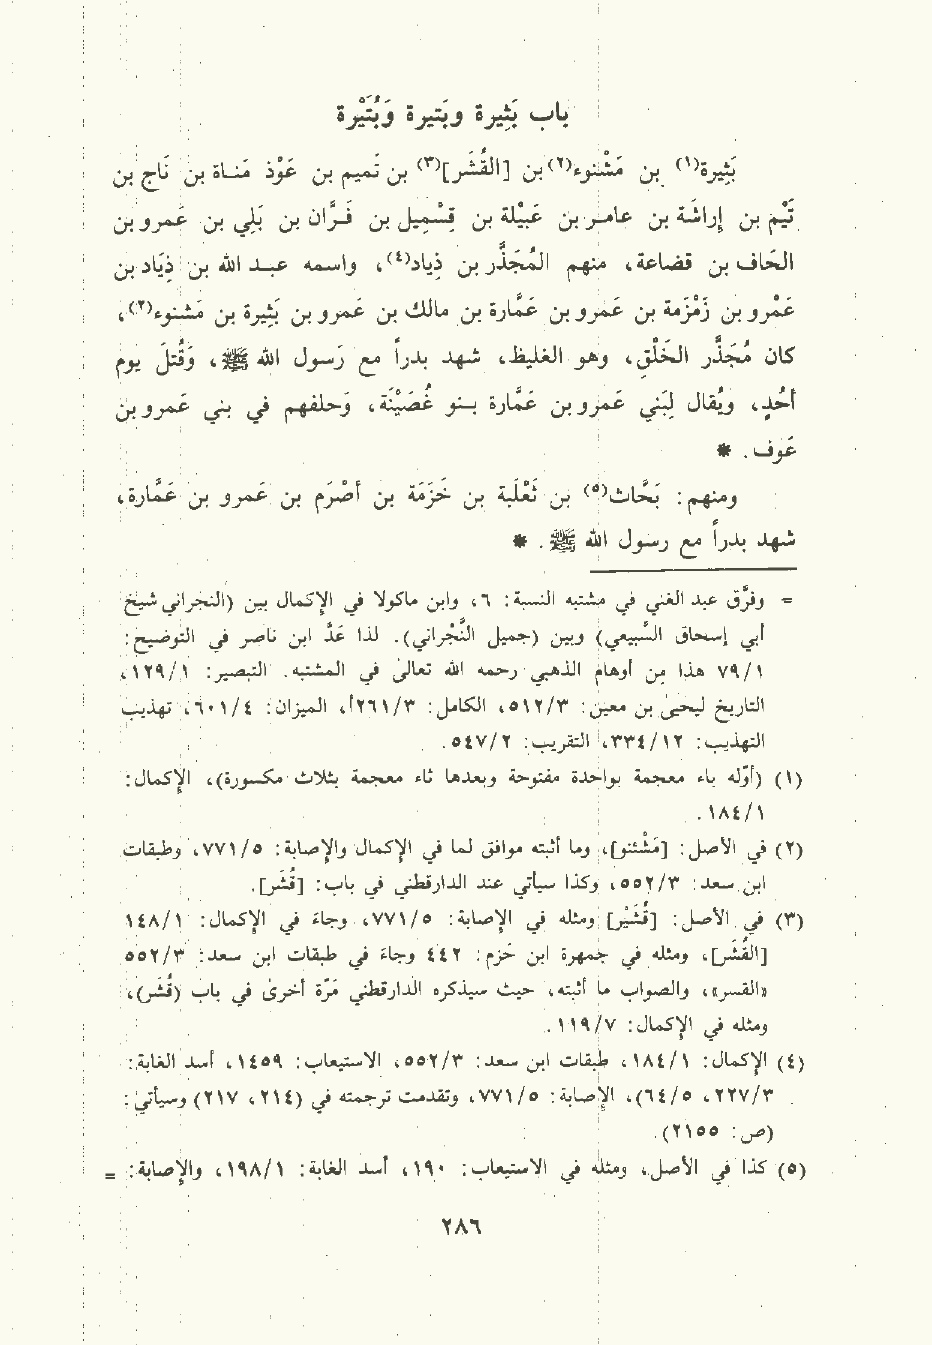 باب بَثِيرة وبَتيرة وَبُتَيْرة
بَثِيرة(١) بن مَشْنوء(٢) بن [القُشَر](٣) بن تَميم بن عَوْذ مَناة بن نَاج بن
تَيْم بن إرَاشَة بن عامر بن عَبْيلة بن قِسْمِيل بن فَرَّان بن بَلِي بن عَمرو بن
الحَاف بن قضاعة، منهم المُجَذَّر بن ذِياد(٤)، واسمه عبد الله بن ذِيَاد بن
عَمْرو بن زَمْزَمة بن عَمرو بن عَمَّارة بن مالك بن عَمرو بن بَثِيرة بن مَشنوء(٢)،
كان مُجَذَّر الخَلْقِ، وهو الغليظ، شهد بدراً مع رَسول الله ﷺ، وَقُتلَ يوم
أحُدٍ، ويُقال لِبَني عَمرو بن عَمَّارة بنو غُصَيْنَة، وَحلفهم في بني عَمرو بن
عَوف. *
ومنهم: بَحَّاث(٥) بن ثَعْلَبة بن خَزَمَة بن أصْرَم بن عَمرو بن عَمَّارة،
شهد بدراً مع رسول الله ﷺ. *
= وفرَّق عبد الغني في مشتبه النسبة: ٦، وابن ماكولا في الإكمال بين (النجراني شيخ
أبي إسحاق السَّبيعي) وبين (جميل النَّجْراني). لذا عَدَّ ابن ناصر في التوضيح:
٧٩/١ هذا مِن أوهام الذهبي رحمه الله تعالىٰ في المشتبه. التبصير: ١٢٩/١،
التاريخ ليحيىٰ بن معين: ٥١٢/٣، الكامل: ٢٦١/٣أ، الميزان: ٦٠١/٤، تهذيب
التهذيب: ٣٣٤/١٢، التقريب: ٥٤٧/٢.
(١) (أوّله باء معجمة بواحدة مفتوحة وبعدها ثاء معجمة بثلاث مكسورة)، الإكمال:
١٨٤/١.
(٢) في الأصل: [مَشْئنو]، وما أثبته موافق لما في الإكمال والإصابة: ٧٧١/٥، وطبقات
ابن سعد: ٥٥٢/٣، وكذا سيأتي عند الدارقطني في باب: [قُشَر].
(٣) في الأصل: [قُشَيْر] ومثله في الإصابة: ٧٧١/٥، وجاءَ في الإكمال: ١٤٨/١
[القُشَر]، ومثله في جمهرة ابن حَزم: ٤٤٢ وجاءَ في طبقات ابن سعد: ٥٥٢/٣
«القسر»، والصواب ما أثبته، حيث سيذكره الدارقطني مَرّة أخرىٰ في باب (قُشَر)،
ومثله في الإكمال: ١١٩/٧.
(٤) الإكمال: ١٨٤/١، طبقات ابن سعد: ٥٥٢/٣، الاستيعاب: ١٤٥٩، أسد الغابة:
٢٢٧/٣، ٦٤/٥)، الإصابة: ٧٧١/٥، وتقدمت ترجمته في (٢١٤، ٢١٧) وسيأتي:
(ص: ٢١٥٥).
(٥) كذا في الأصل، ومثله في الاستيعاب: ١٩٠، أسد الغابة: ١٩٨/١، والإصابة: =
٢٨٦